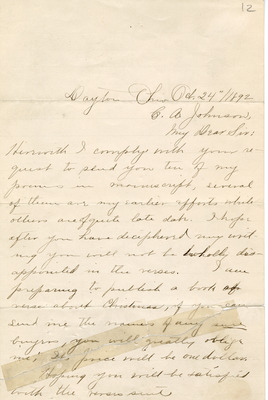 12
Dayton Ohio Oct. 24th /1892
C. A. Johnson,
My Dear Sir:
Herewith I comply with your re-
quest to send you ten of my
poems in manuscript, several
of them are my earlier efforts while
others are of quite late date. I hope
after you have deciphered my writ
ing you will not be wholly dis
appointed in the verses. I am
preparing to publish a book of
verse about Christmas, if you can
send me the names of any sure
buyers, you will greatly oblige
me; Its price will be one dollar.
Hoping you will be satisfied
with the verses sent